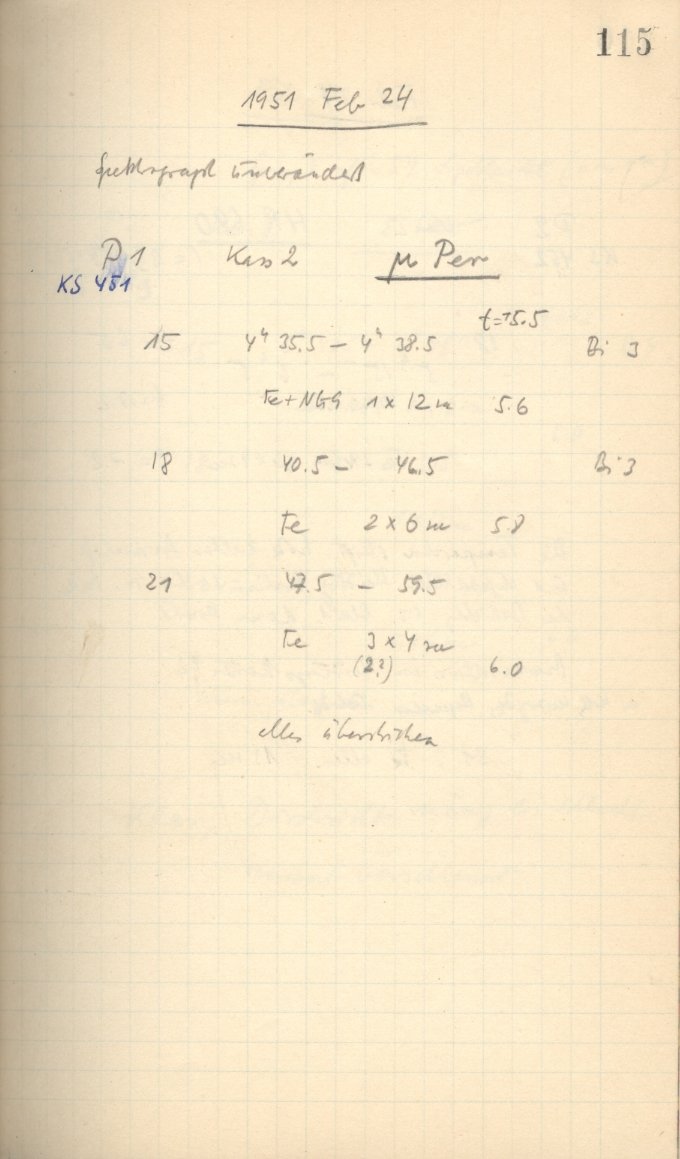 115
1951 Feb 24
Spektrograph unverändert
P 1 Kass 2 μ Per
KS 451
t=+5.5
15 4h 35.5 – 4h 38.5 Bi 3
Fe+NGG 1 x 12 m 5.6
18 40.5 – 46.5 Bi 3
Fe 2 x 6 m 5.8
21 47.5 – 59.5
Fe 3 x 4 m
(2?) 6.0
alles überstrichen